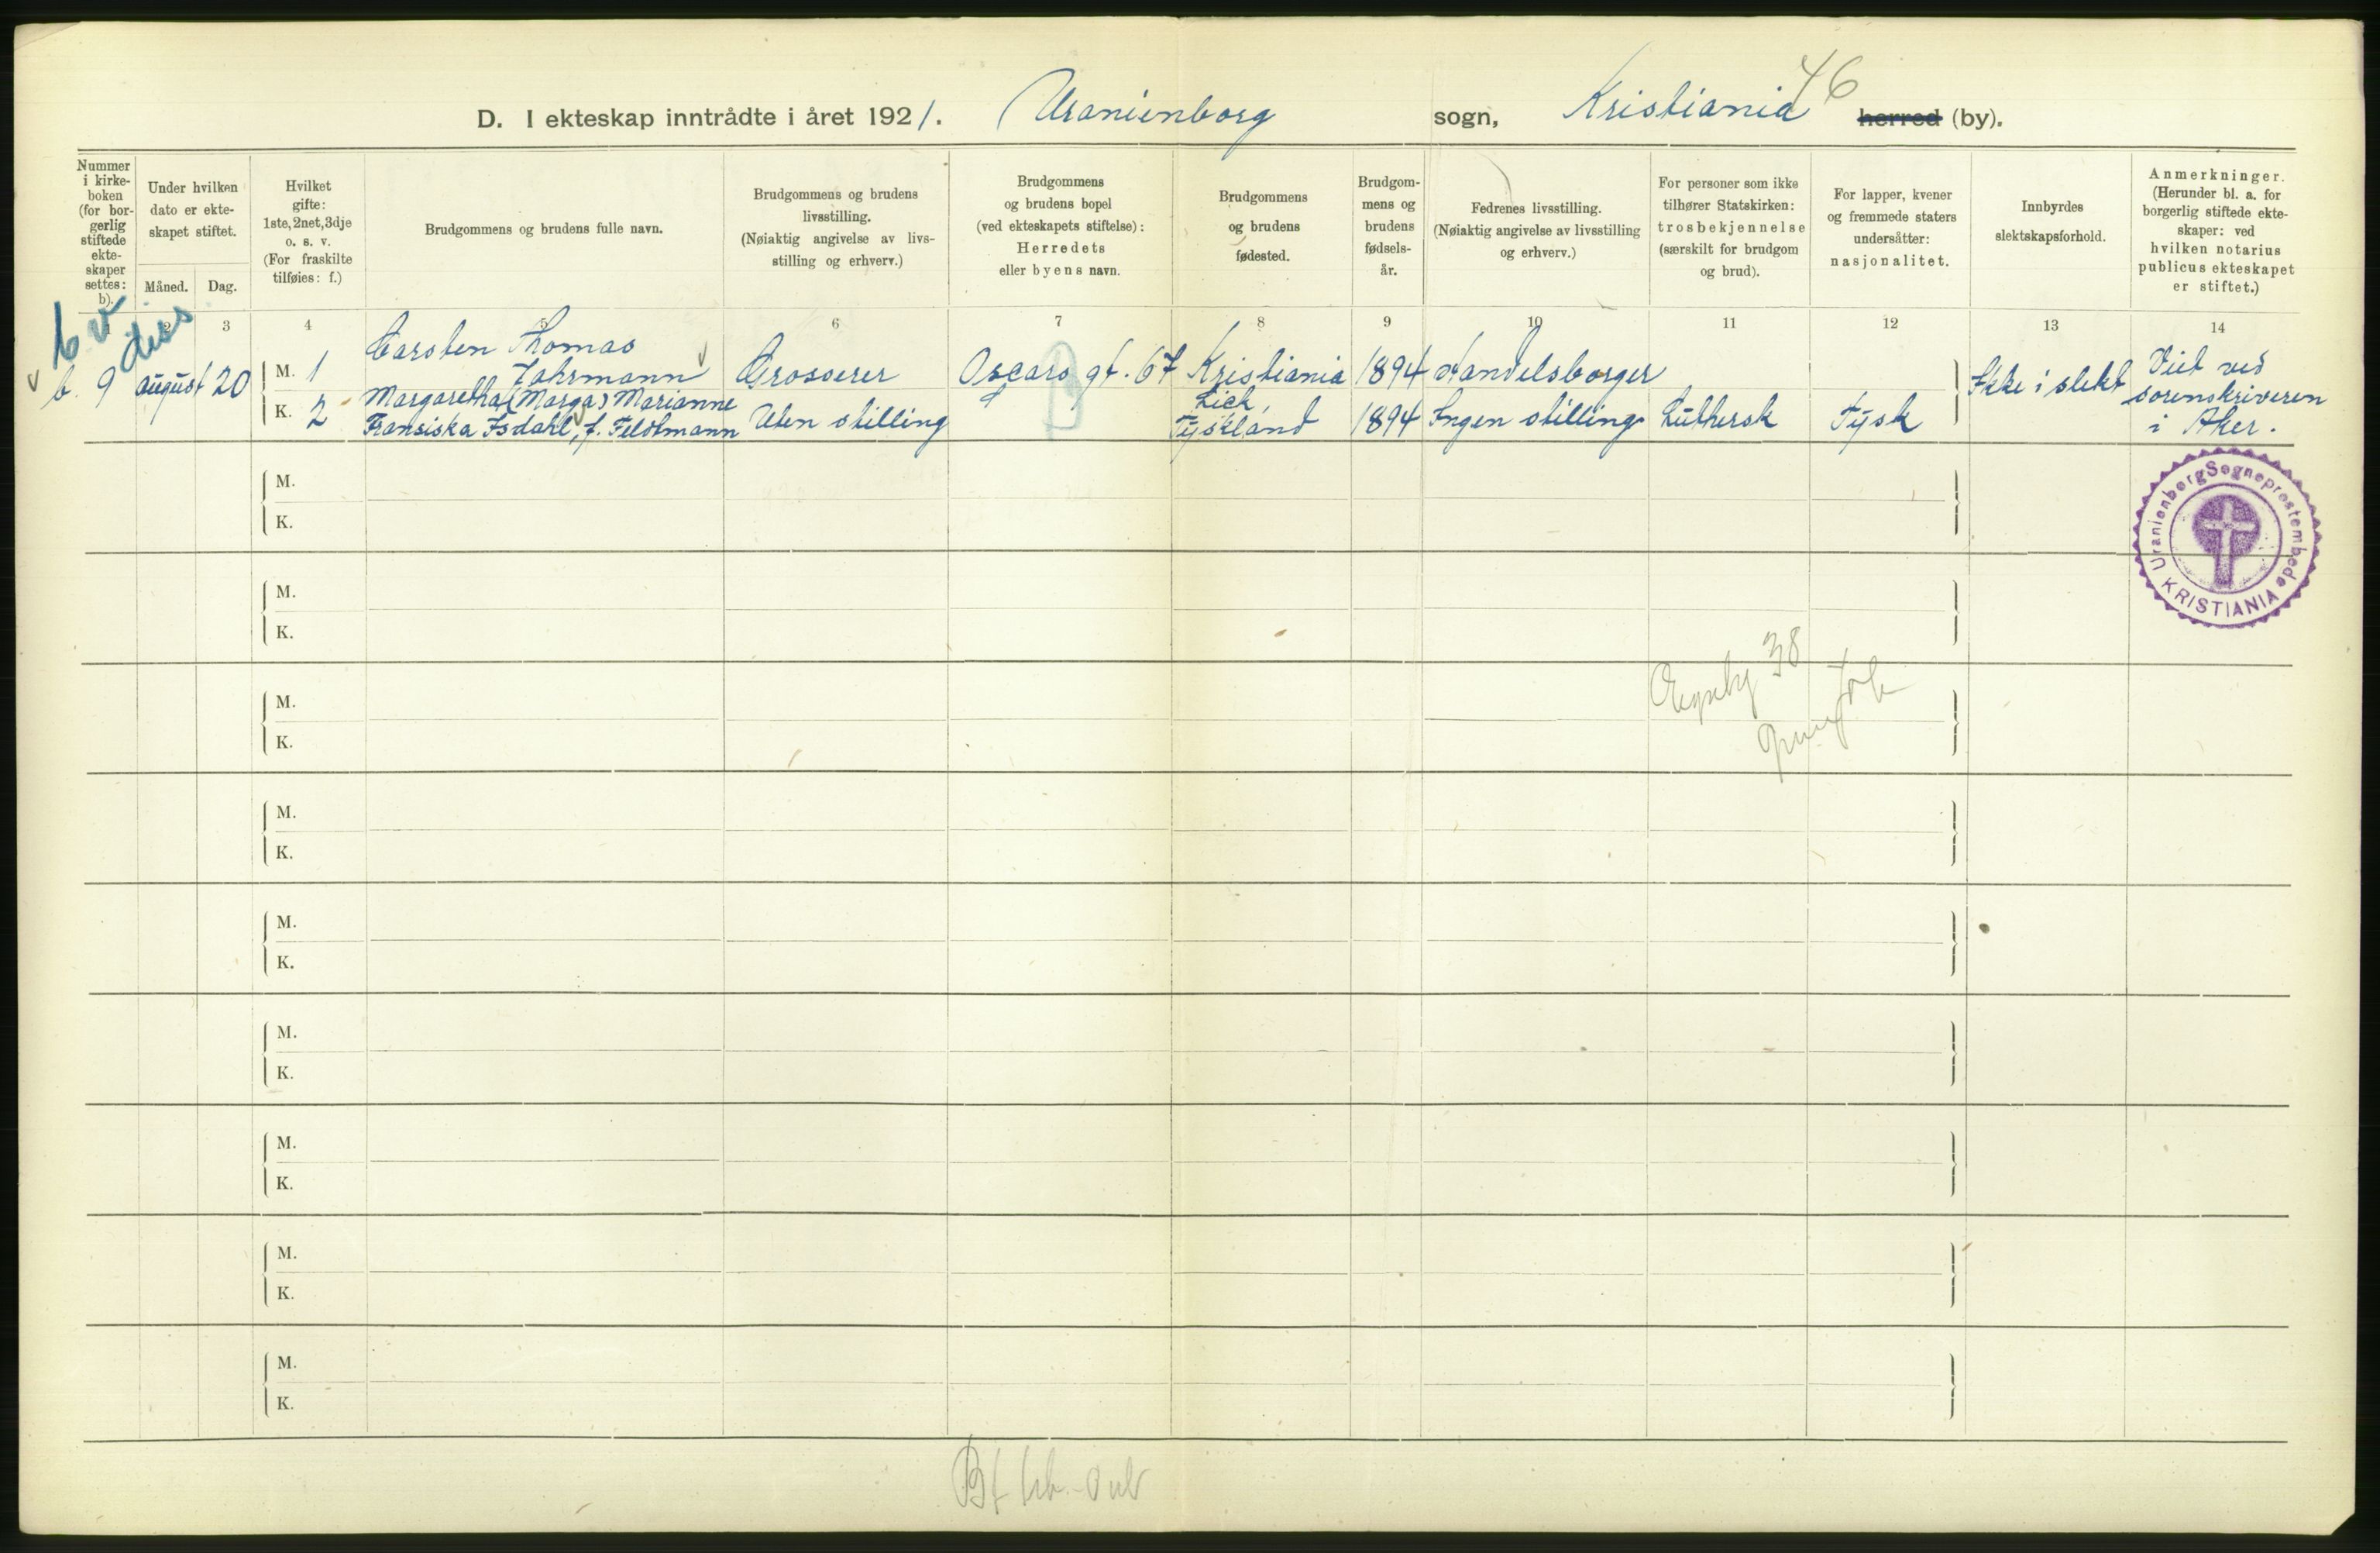 46
D. I ekteskap inntrådte i året 1921. Uranienborg sogn, Kristiania herred (by).
Nummer i kirke-
boken
(for bor-
gerlig
stiftede
ekte-
skaper
settes:
b).
Under hvilken
dato er ekte-
skapet stiftet.
Måned. Dag.
Hvilket
gifte:
1ste, 2net, 3dje
o. s. v.
(For fraskilte
tilføies: f.)
Brudgommens og brudens fulle navn.
Brudgommens og brudens
livsstilling.
(Nøiaktig angivelse av livs-
stilling og erhverv.)
Brudgommens
og brudens bopel
(ved ekteskapets stiftelse):
Herredets
eller byens navn.
Brudgommens
og brudens
fødested.
Brudgom-
mens og
brudens
fødsels-
år.
Fedrenes livsstilling.
(Nøiaktig angivelse av livsstilling
og erhverv.)
For personer som ikke
tilhører Statskirken:
trosbekjennelse
(særskilt for brudgom
og brud).
For lapper, kvener
og fremmede staters
undersåtter:
nasjonalitet.
Innbyrdes
slektskapsforhold.
Anmerkninger.
(Herunder bl. a. for
borgerlig stiftede ekte-
skaper: ved
hvilken notarius
publicus ekteskapet
er stiftet.)
1 2 3 4 5 6 7 8 9 10 11 12 13 14
b. 9 august 20
M. 1 Carsten Thomas
Fahrmann Grosserer Oscars gt. 67 Kristiania 1894 Handelsborger
K. 2 Margaretha (Marga) Marianne
Fransiska Isdahl, f. Feldtmann Uten stilling
Lick,
Tyskland 1894 Ingen stilling Luthersk Tysk
Ikke i slekt
Viet ved
sorenskriveren
i Aker.
Uranienborg Sogneprestembede
KRISTIANIA
M.
K.
M.
K.
38
M.
K.
M.
K.
M.
K.
M.
K.
M.
K.
M.
K.
M.
K.